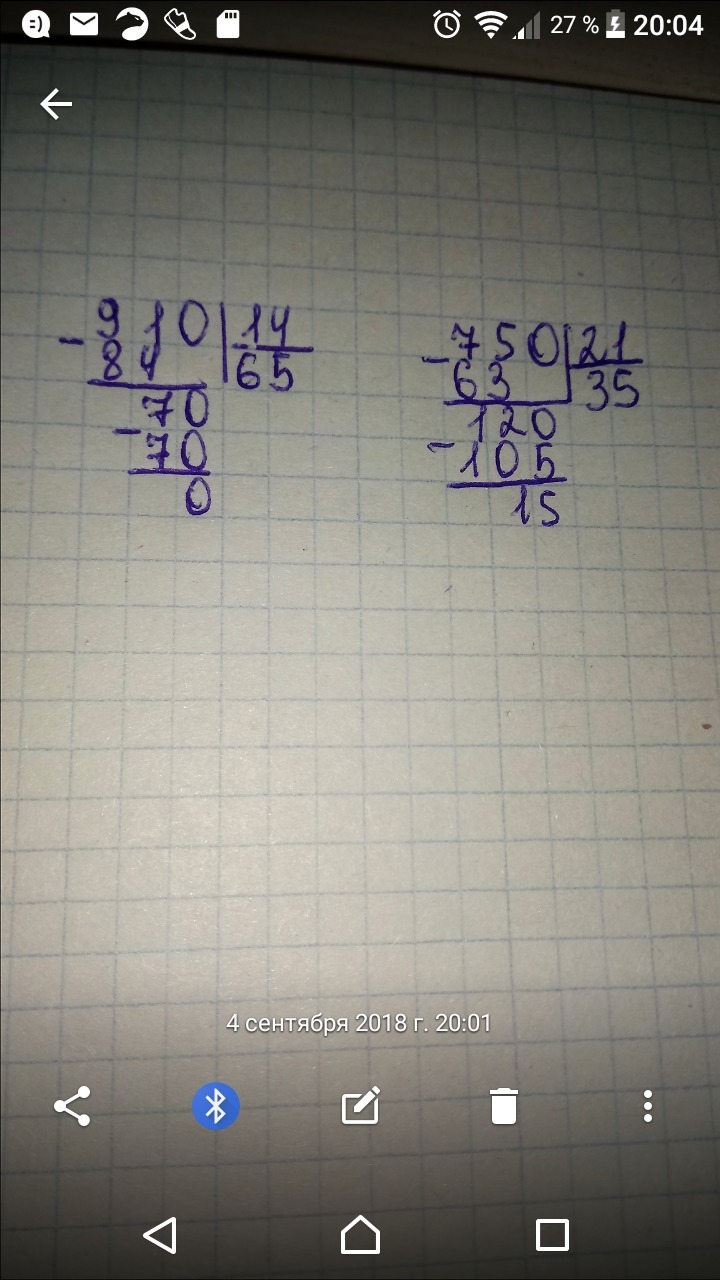 27 % 20:04
910 | 14
- 84 65
- 70
70
0
- 750 | 21
63 35
120
- 105
15
4 сентября 2018 г. 20:01